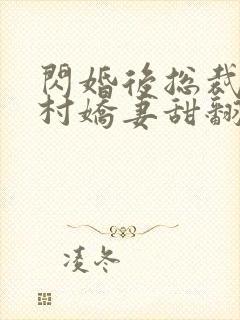 閃婚後総裁
村嬌妻甜翻
凌冬